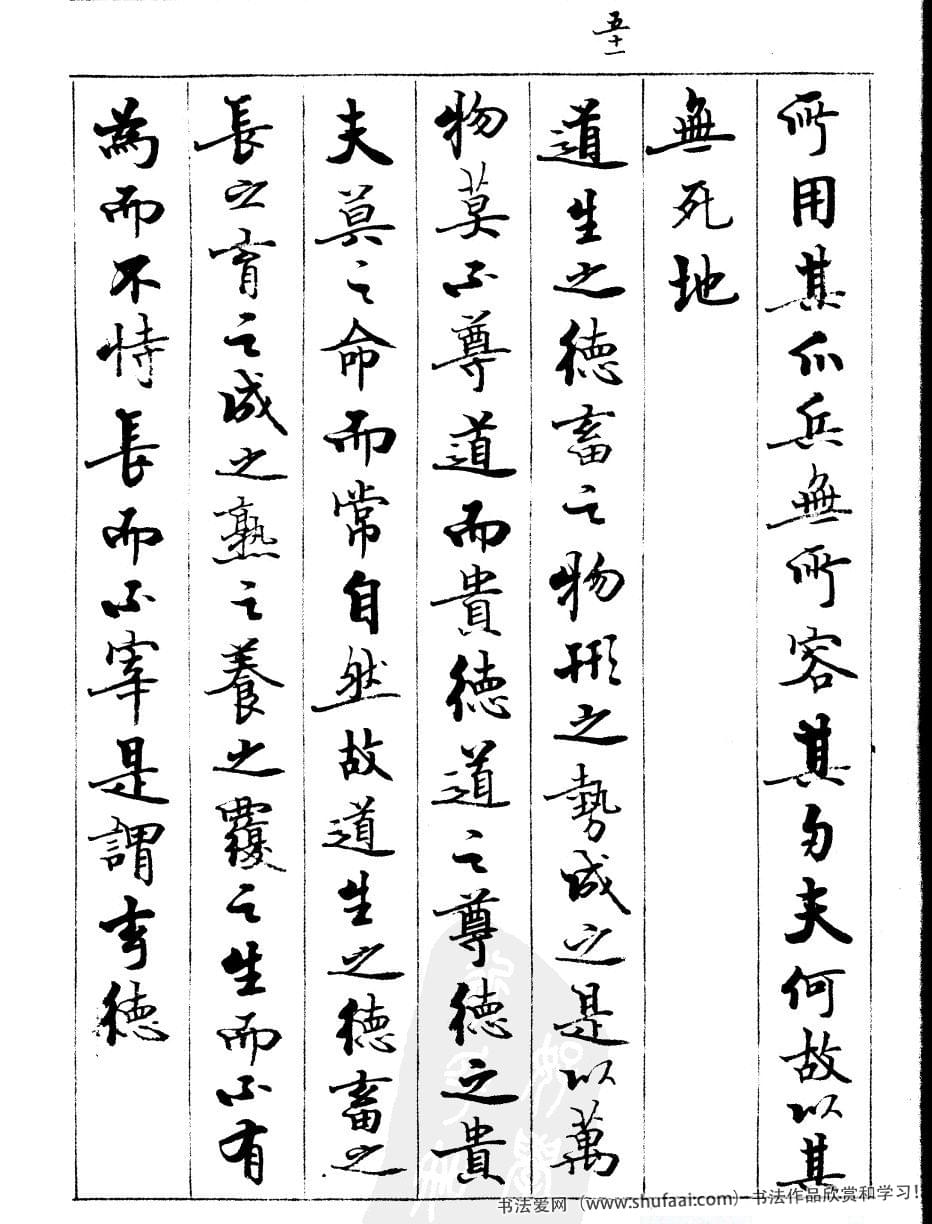 五十一
所用其爪兵無所容其勿夫何故以其
無死地
道生之德畜之物形之勢成之是以萬
物莫不尊道而貴德道之尊德之貴
夫莫之命而常自然故道生之德畜之
長之育之成之熟之養之覆之生而不有
為而不恃長而不宰是謂玄德
书法爱网（www.shufaai.com）-书法作品欣赏和学习！